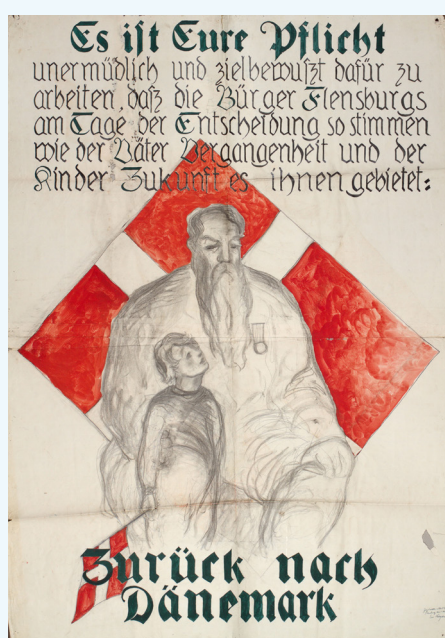 Es ist Eure Pflicht
unermüdlich und zielbewußt dafür zu
arbeiten, daß die Bürger Flensburgs
am Tage der Entscheidung so stimmen
wie der Väter Vergangenheit und der
Kinder Zukunft es ihnen gebietet:
Zurück nach
Dänemark